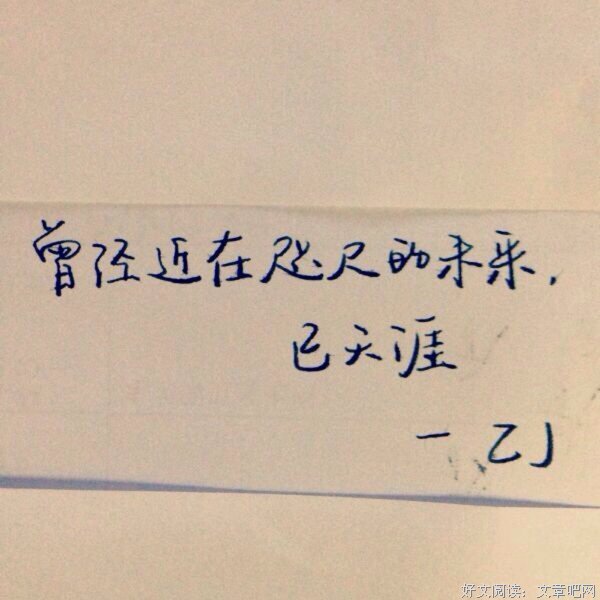 曾经近在咫尺的未来,
已天涯
一乙J
好文阅读：文章吧网